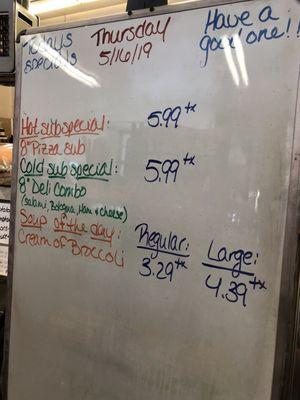 Todays
Specials
Thursday
5/16/19
Have a
good one!!
Hot sub special:
5.99 + tx
8" Pizza sub
Cold sub special:
5.99 + tx
8" Deli Combo
(Salami, Bologna, Ham & cheese)
Soup of the day:
Cream of Broccoli
Regular:
3.29 + tx
Large:
4.39 + tx